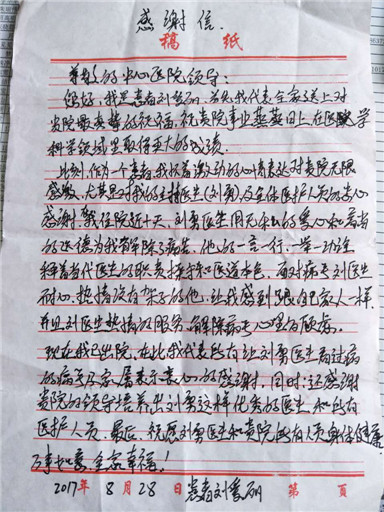 感谢信.
稿 纸
尊敬的中心医院领导:
您好,我是患者刘爱丽.首先我代表全家送上对
贵院最真挚的祝福,祝贵院事业蒸蒸日上,在医学
科学领域里取得更大的成绩.
此刻,作为一个患者,我怀着激动的心情表达对贵院无限
感激,尤其是对我的主治医生(刘勇)及全体医护人员的衷心
感谢.我住院近十天,刘勇医生用无私的爱心和高尚
的医德为我解除了病苦.他的一言一行,一举一动诠
释着当代医生的职责操守和医道本色.面对病号刘医生
耐心.热情没有架子的他,让我感到跟自己家人一样.
并且刘医生热情的服务,解除病号心里的顾虑.
现在我已出院,在此我代表所有让刘勇医生看过病
的病号及家属表示衷心的感谢.同时:还感谢
贵院的领导培养出刘勇这样优秀的医生和所有
医护人员.最后.祝愿刘勇医生和贵院所有人员身体健康
万事如意,全家幸福!
2017年 8月 28日 患者刘爱丽 第 页